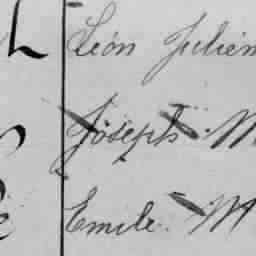 Léon Julien
Joseph M
Emile M